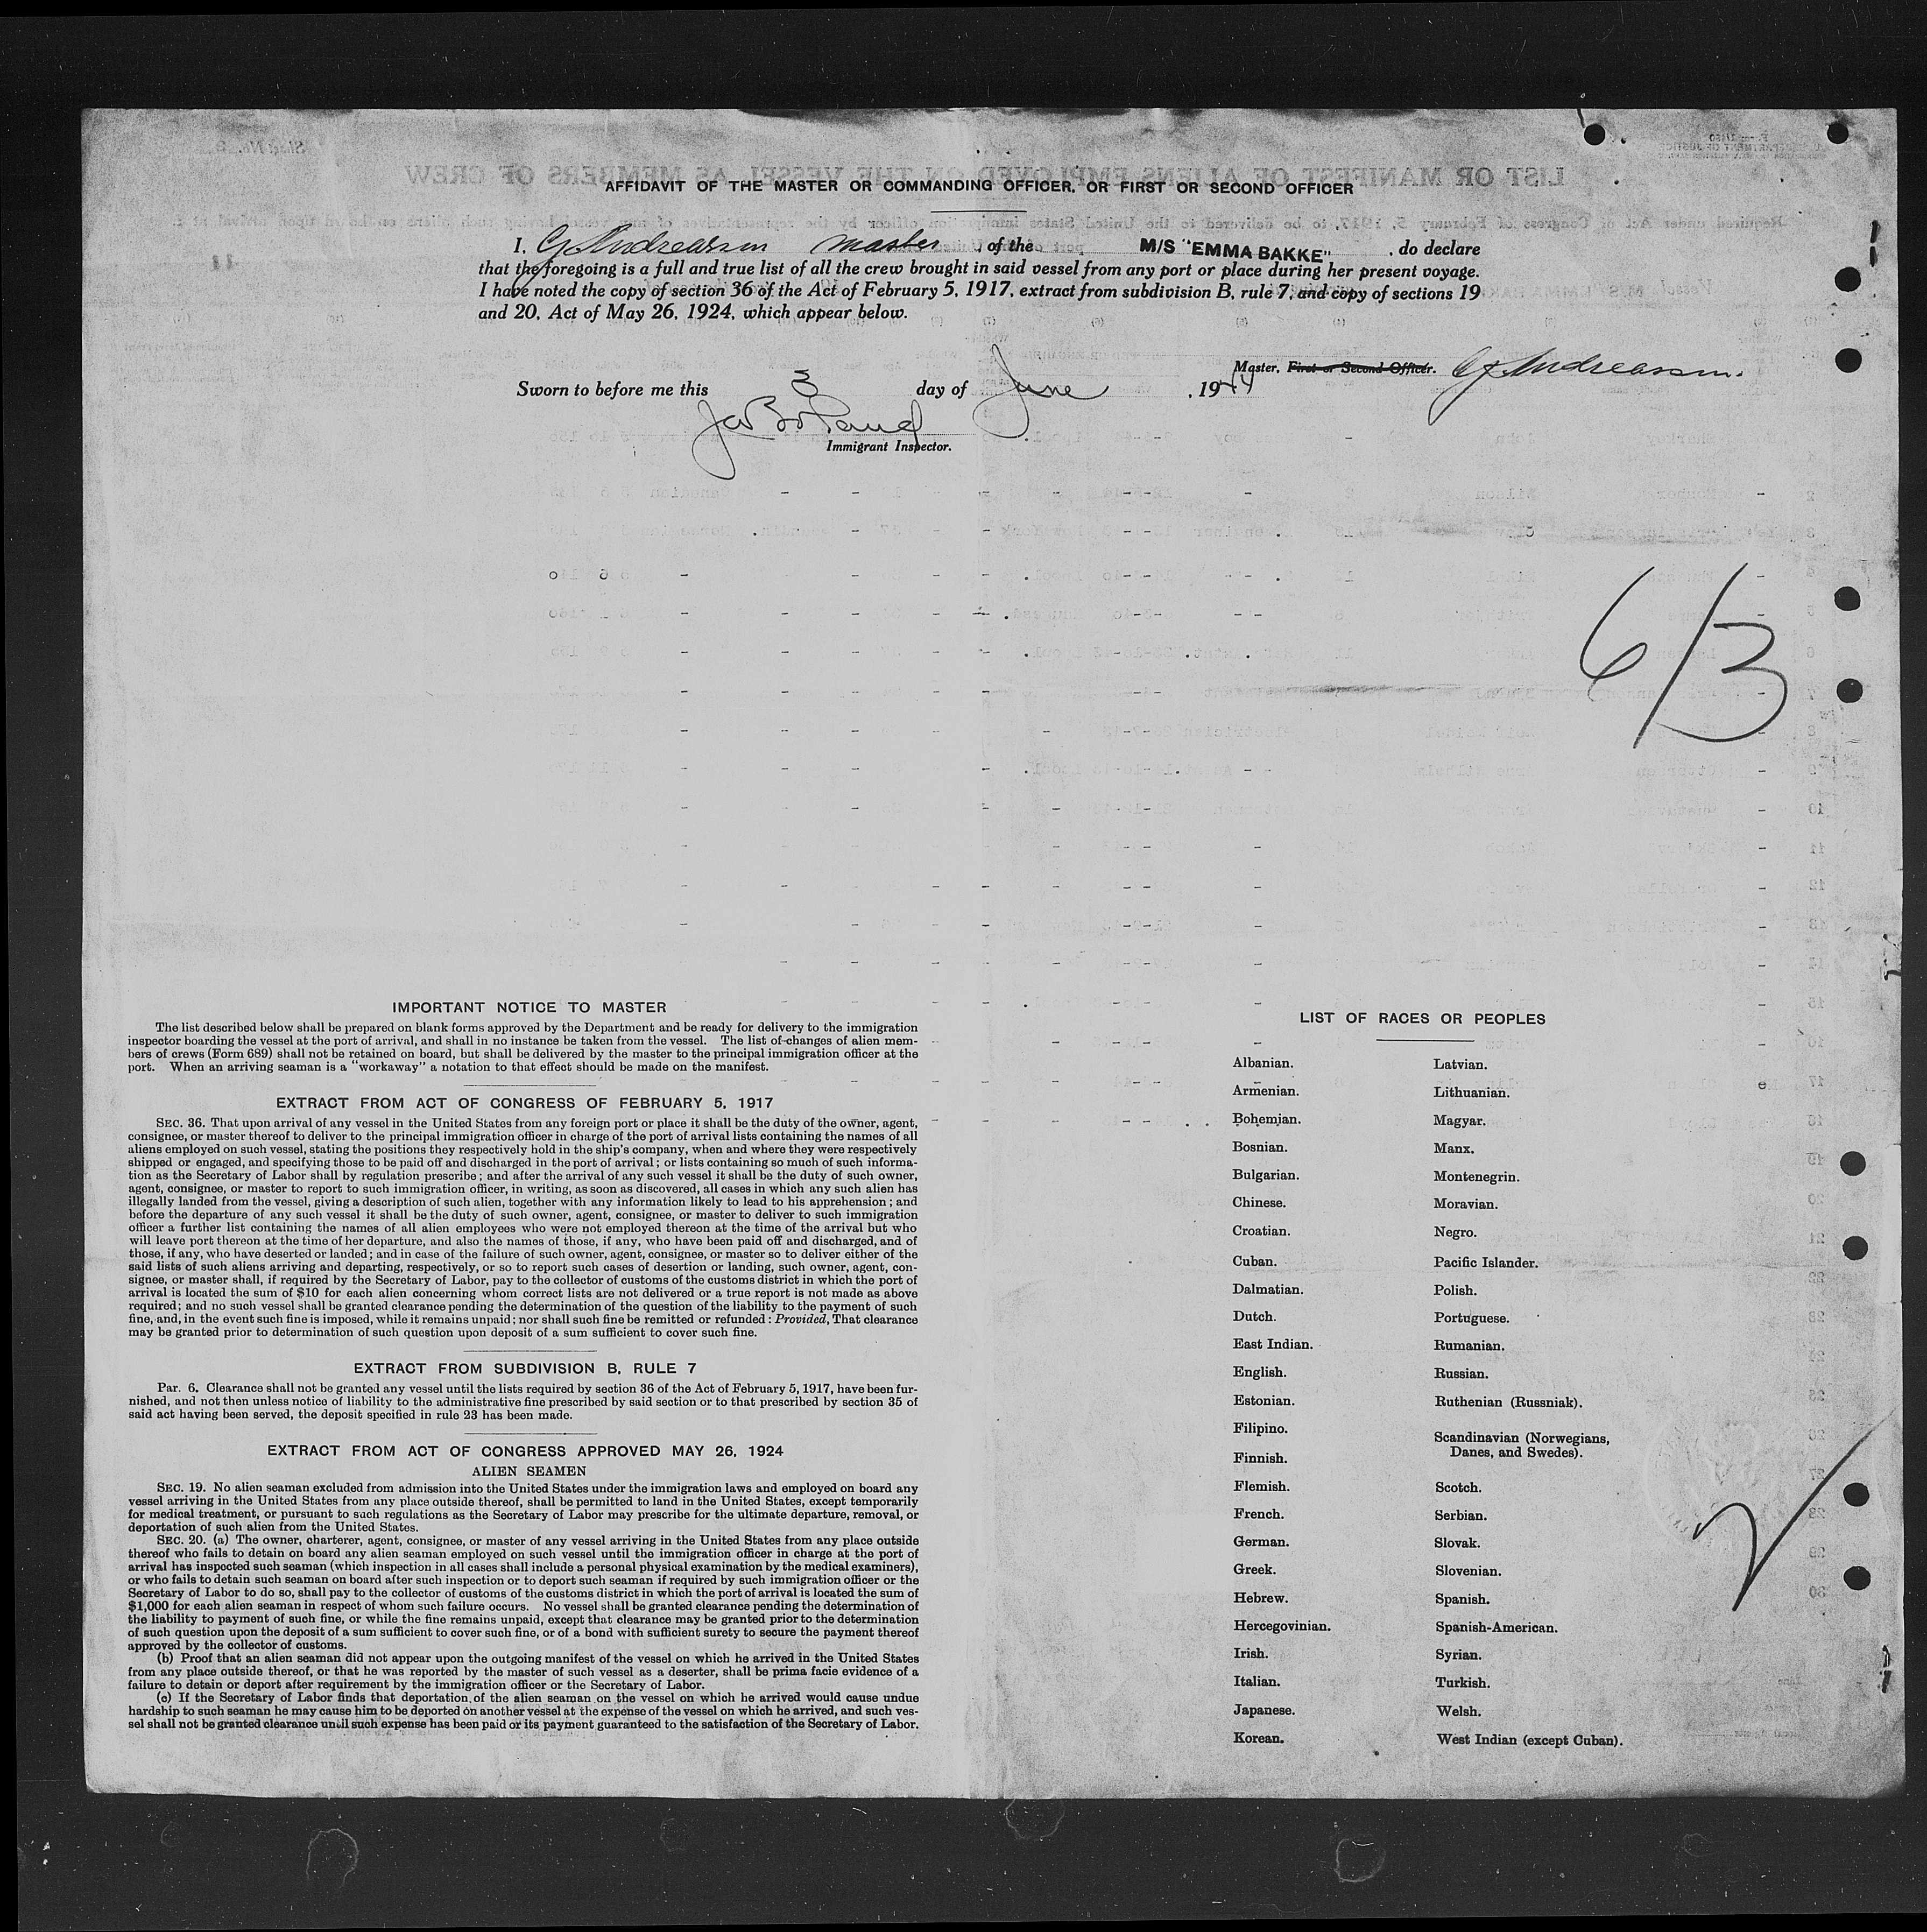 AFFIDAVIT OF THE MASTER OR COMMANDING OFFICER, OR FIRST OR SECOND OFFICER
I, G Andreassen master, of the M/S "EMMA BAKKE", do declare
that the foregoing is a full and true list of all the crew brought in said vessel from any port or place during her present voyage.
I have noted the copy of section 36 of the Act of February 5, 1917, extract from subdivision B, rule 7, and copy of sections 19
and 20, Act of May 26, 1924, which appear below.
Master, First or Second Officer. G Andreassen.
Sworn to before me this 3 day of June, 1944
Immigrant Inspector.
6/3
IMPORTANT NOTICE TO MASTER
The list described below shall be prepared on blank forms approved by the Department and be ready for delivery to the immigration
inspector boarding the vessel at the port of arrival, and shall in no instance be taken from the vessel. The list of changes of alien mem-
bers of crews (Form 689) shall not be retained on board, but shall be delivered by the master to the principal immigration officer at the
port. When an arriving seaman is a "workaway" a notation to that effect should be made on the manifest.
EXTRACT FROM ACT OF CONGRESS OF FEBRUARY 5, 1917
SEC. 36. That upon arrival of any vessel in the United States from any foreign port or place it shall be the duty of the owner, agent,
consignee, or master thereof to deliver to the principal immigration officer in charge of the port of arrival lists containing the names of all
aliens employed on such vessel, stating the positions they respectively hold in the ship's company, when and where they were respectively
shipped or engaged, and specifying those to be paid off and discharged in the port of arrival; or lists containing so much of such informa-
tion as the Secretary of Labor shall by regulation prescribe; and after the arrival of any such vessel it shall be the duty of such owner,
agent, consignee, or master to report to such immigration officer, in writing, as soon as discovered, all cases in which any such alien has
illegally landed from the vessel, giving a description of such alien, together with any information likely to lead to his apprehension; and
before the departure of any such vessel it shall be the duty of such owner, agent, consignee, or master to deliver to such immigration
officer a further list containing the names of all alien employees who were not employed thereon at the time of the arrival but who
will leave port thereon at the time of her departure, and also the names of those, if any, who have been paid off and discharged, and of
those, if any, who have deserted or landed; and in case of the failure of such owner, agent, consignee, or master so to deliver either of the
said lists of such aliens arriving and departing, respectively, or so to report such cases of desertion or landing, such owner, agent, con-
signee, or master shall, if required by the Secretary of Labor, pay to the collector of customs of the customs district in which the port of
arrival is located the sum of $10 for each alien concerning whom correct lists are not delivered or a true report is not made as above
required; and no such vessel shall be granted clearance pending the determination of the question of the liability to the payment of such
fine, and, in the event such fine is imposed, while it remains unpaid; nor shall such fine be remitted or refunded: Provided, That clearance
may be granted prior to determination of such question upon deposit of a sum sufficient to cover such fine.
EXTRACT FROM SUBDIVISION B, RULE 7
Par. 6. Clearance shall not be granted any vessel until the lists required by section 36 of the Act of February 5, 1917, have been fur-
nished, and not then unless notice of liability to the administrative fine prescribed by said section or to that prescribed by section 35 of
said act having been served, the deposit specified in rule 23 has been made.
EXTRACT FROM ACT OF CONGRESS APPROVED MAY 26, 1924
ALIEN SEAMEN
SEC. 19. No alien seaman excluded from admission into the United States under the immigration laws and employed on board any
vessel arriving in the United States from any place outside thereof, shall be permitted to land in the United States, except temporarily
for medical treatment, or pursuant to such regulations as the Secretary of Labor may prescribe for the ultimate departure, removal, or
deportation of such alien from the United States.
SEC. 20. (a) The owner, charterer, agent, consignee, or master of any vessel arriving in the United States from any place outside
thereof who fails to detain on board any alien seaman employed on such vessel until the immigration officer in charge at the port of
arrival has inspected such seaman (which inspection in all cases shall include a personal physical examination by the medical examiners),
or who fails to detain such seaman on board after such inspection or to deport such seaman if required by such immigration officer or the
Secretary of Labor to do so, shall pay to the collector of customs of the customs district in which the port of arrival is located the sum of
$1,000 for each alien seaman in respect of whom such failure occurs. No vessel shall be granted clearance pending the determination of
the liability to payment of such fine, or while the fine remains unpaid, except that clearance may be granted prior to the determination
of such question upon the deposit of a sum sufficient to cover such fine, or of a bond with sufficient surety to secure the payment thereof
approved by the collector of customs.
(b) Proof that an alien seaman did not appear upon the outgoing manifest of the vessel on which he arrived in the United States
from any place outside thereof, or that he was reported by the master of such vessel as a deserter, shall be prima facie evidence of a
failure to detain or deport after requirement by the immigration officer or the Secretary of Labor.
(c) If the Secretary of Labor finds that deportation of the alien seaman on the vessel on which he arrived would cause undue
hardship to such seaman he may cause him to be deported on another vessel at the expense of the vessel on which he arrived, and such ves-
sel shall not be granted clearance until such expense has been paid or its payment guaranteed to the satisfaction of the Secretary of Labor.
LIST OF RACES OR PEOPLES
Albanian.
Armenian.
Bohemian.
Bosnian.
Bulgarian.
Chinese.
Croatian.
Cuban.
Dalmatian.
Dutch.
East Indian.
English.
Estonian.
Filipino.
Finnish.
Flemish.
French.
German.
Greek.
Hebrew.
Hercegovinian.
Irish.
Italian.
Japanese.
Korean.
Latvian.
Lithuanian.
Magyar.
Manx.
Montenegrin.
Moravian.
Negro.
Pacific Islander.
Polish.
Portuguese.
Rumanian.
Russian.
Ruthenian (Russniak).
Scandinavian (Norwegians,
Danes, and Swedes).
Scotch.
Serbian.
Slovak.
Slovenian.
Spanish.
Spanish-American.
Syrian.
Turkish.
Welsh.
West Indian (except Cuban).